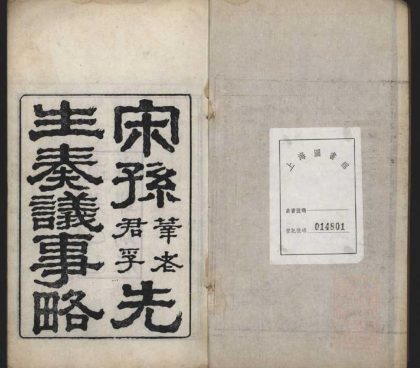 宋孫莘老君孚先
生奏議事略
上海圖書館
索書號碼
登記號碼 014801